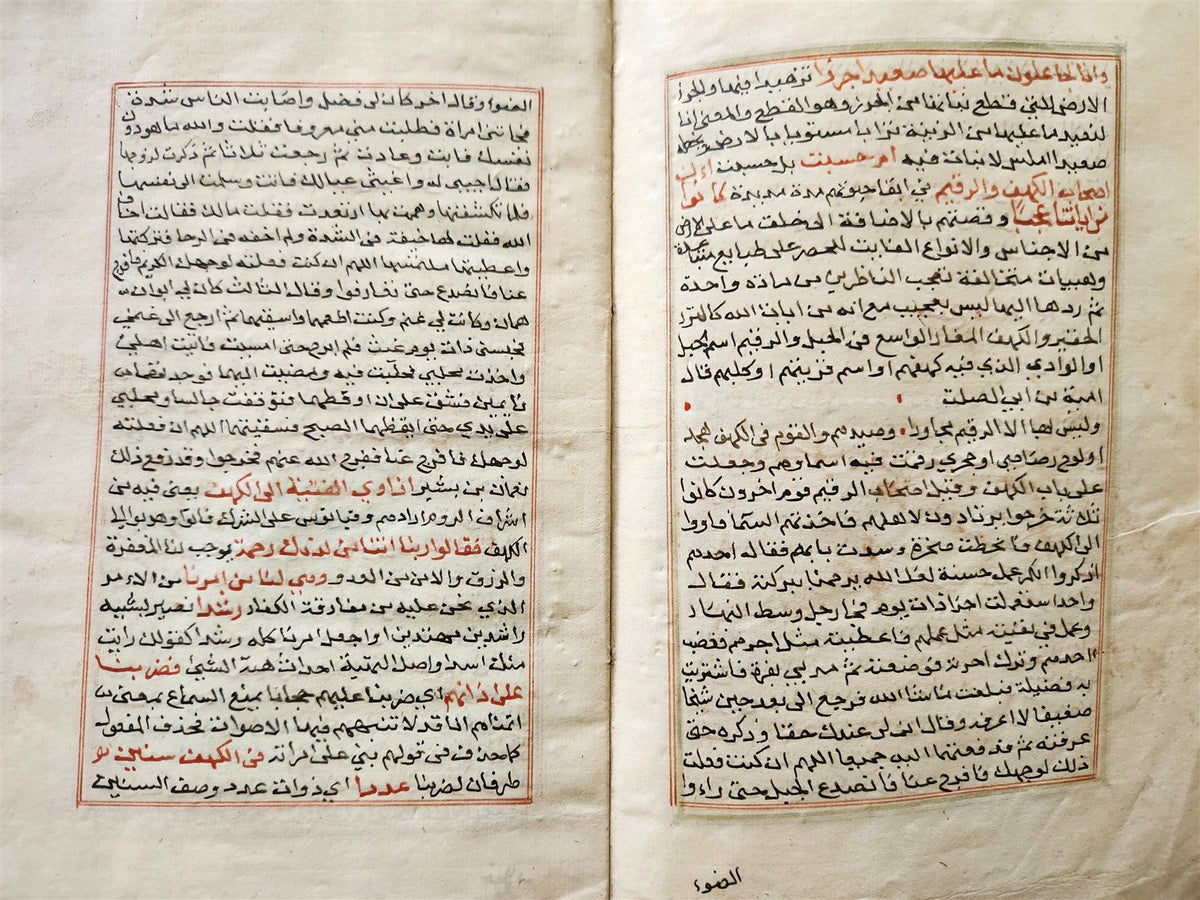 وانا لجاعلون ما عليها صعيدا جرزا تزهيد فيها والجرز
الارض التي قطع نباتها من الجرز وهو القطع والمعنى انا
لنعيد ما عليها من الزينة ترابا مستويا بالارض ونجعله
صعيد املس لا نبات فيه ام حسبت بل حسبت ان
اصحاب الكهف والرقيم في ابقا حيوتهم مدة مديدة كانوا
من اياتنا عجبا وقصتهم بالاضافة الى خلق ما على الارض
من الاجناس والانواع الفايتة للحصر على طبايع متباعدة
وهيبيات متخالفة تعجب الناظرين من مادة واحدة
ثم ردها اليها ليس بعجيب مع انه من ايات الله كالنزر
الحقير والكهف الغار الواسع في الجبل والرقيم اسم الجبل
او الوادي الذي فيه كهفهم او اسم قريتهم او كلبهم قال
امية بن ابي الصلت
وليس لها الا الرقيم مجاورا وصيدهم والقوم في الكهف هجد
او لوح رصاصي او حجري رقمت فيه اسماوهم وجعلت
على باب الكهف وقيل اصحاب الرقيم قوم اخرون كانوا
ثلاثة خرجوا يرتادون لاهلهم فاخذتهم السما فاووا
الى الكهف فانحطت صخرة وسدت بابهم فقال احدهم
اذكروا ايكم عمل حسنة لعل الله يرحمنا ببركته فقال
واحد استعملت اجرا ذات يوم فجا رجل وسط النهار
وعمل في بقيته مثل عملهم فاعطيته مثل اجرهم فغضب
احدهم وترك اجرته فوضعته ثم مر بي بقرة فاشتريت
به فصيلة فبلغت ما شا الله فرجع الي بعد حين شيخا
ضعيفا لا اعرفه وقال ان لي عندك حقا وذكره حتى
عرفته ثم دفعتها اليه جميعا اللهم ان كنت فعلت
ذلك لوجهك فافرج عنا فانصدع الجبل حتى راءوا
الضوء
الضوء وقال اخر كان لي فضل واصابت الناس شدة
فجاتني امراة فطلبت مني معروفا فقلت والله ما هو دون
نفسك فابت وعادت ثم رجعت ثلاثا ثم ذكرت لزوجها
فقال اجيبي له واغيثي عيالك فاتت وسلمت الي نفسها
فلما تكشفتها وهممت بها ارتعدت فقلت مالك فقالت اخاف
الله فقلت لها خفته في الشدة ولم اخفه في الرخا فتركتها
واعطيتها ملتمسها اللهم ان كنت فعلته لوجهك الكريم فافرج
عنا فانصدع حتى تعارفوا وقال الثالث كان لي ابوان
همان وكانت لي غنم وكنت اطعمهما واسقيهما ثم ارجع الى غنمي
فحبسني ذات يوم غيث فلم ابرح حتى امسيت فاتيت اهلي
واخذت محلبي فحلبت فيه ومضيت اليهما فوجدتهما
نايمين فشق علي ان اوقظهما فتوقفت جالسا ومحلبي
على يدي حتى ايقظهما الصبح فسقيتهما اللهم ان فعلته
لوجهك فافرج عنا ففرج الله عنهم فخرجوا وقد رفع ذلك
نعمان بن بشير اذ اوى الفتية الى الكهف يعني فتية من
اشراف الروم ارادهم دقيانوس على الشرك فابوا وهربوا الى
الكهف فقالوا ربنا اتنا من لدنك رحمة يوجب لنا المغفرة
والرزق والامن من العدو وهيي لنا من امرنا من الامر
الذي نحن عليه من مفارقة الكفار رشدا نصير بسببه
راشدين مهتدين او اجعل امرنا كله رشدا كقولك رايت
منك اسدا واصل التهيية احداث هيية الشي فضربنا
على اذانهم اي ضربنا عليهم حجابا يمنع السماع بمعنى
انمناهم انامة لا تنبههم فيها الاصوات فحذف المفعول
كما حذف في قولهم بني على امراته في الكهف سنين
ظرفان لضربنا عددا اي ذوات عدد ووصف السنين